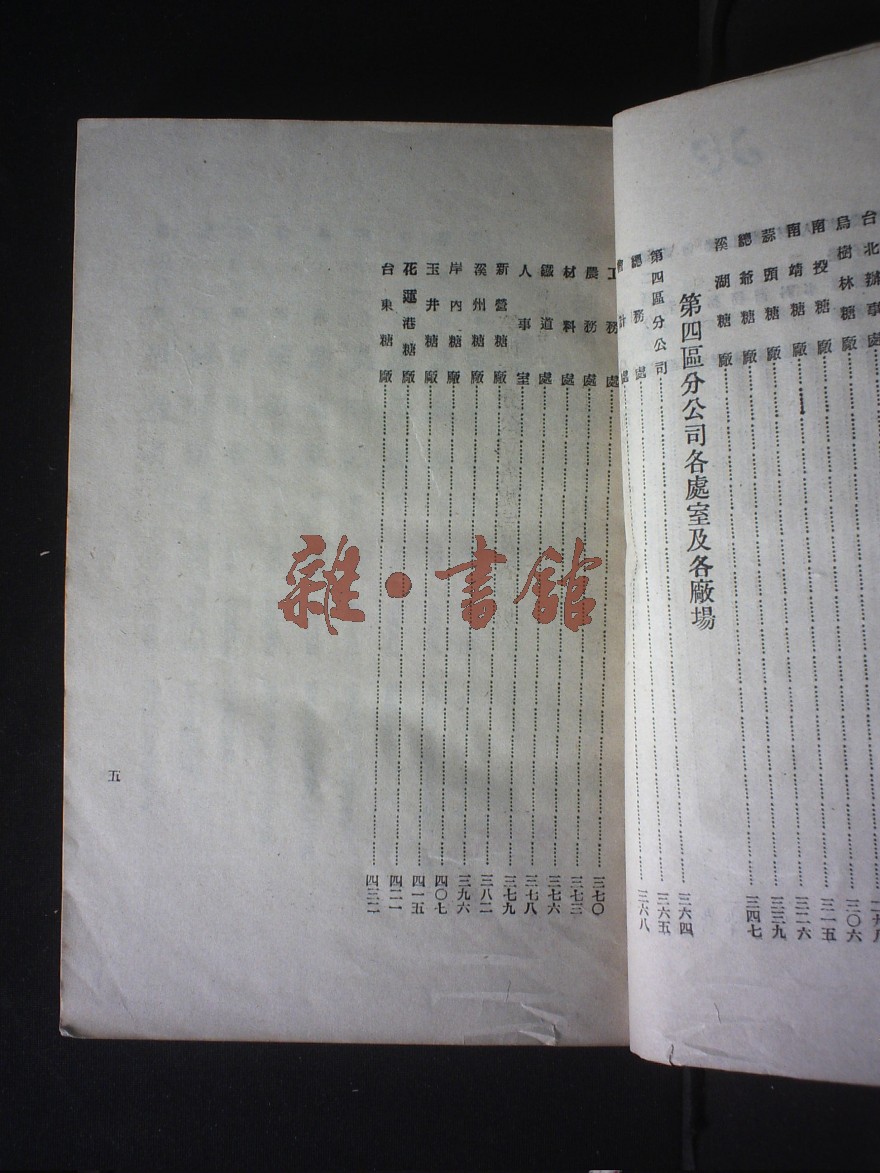 台北辦事處……二九八
烏樹林糖廠……三〇六
南投糖廠……三一五
南靖糖廠……三二六
蒜頭糖廠……三三九
總爺糖廠……三四七
溪湖糖廠
第四區分公司各處室及各廠場
第四區分公司……三六四
總務處……三六五
會計處……三六八
工務處……三七〇
農務處……三七三
材料處……三七六
鐵道處……三七八
人事室……三七九
新營糖廠……三八二
溪州糖廠……三九六
岸內糖廠……四〇七
玉井糖廠……四一五
花蓮港糖廠……四二一
台東糖廠……四三二
五
雜·書館